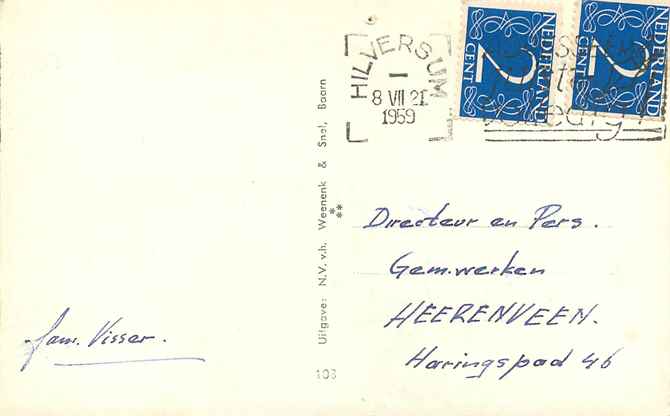 HILVERSUM
8 VII 21
1959
NEDERLAND
2
CENT
NEDERLAND
2
CENT
Uitgave: N.V. v.h. Weenenk & Snel, Baarn
108
Directeur en Pers.
Gem.werken
HEERENVEEN.
Haringspad 46
fam. Visser.